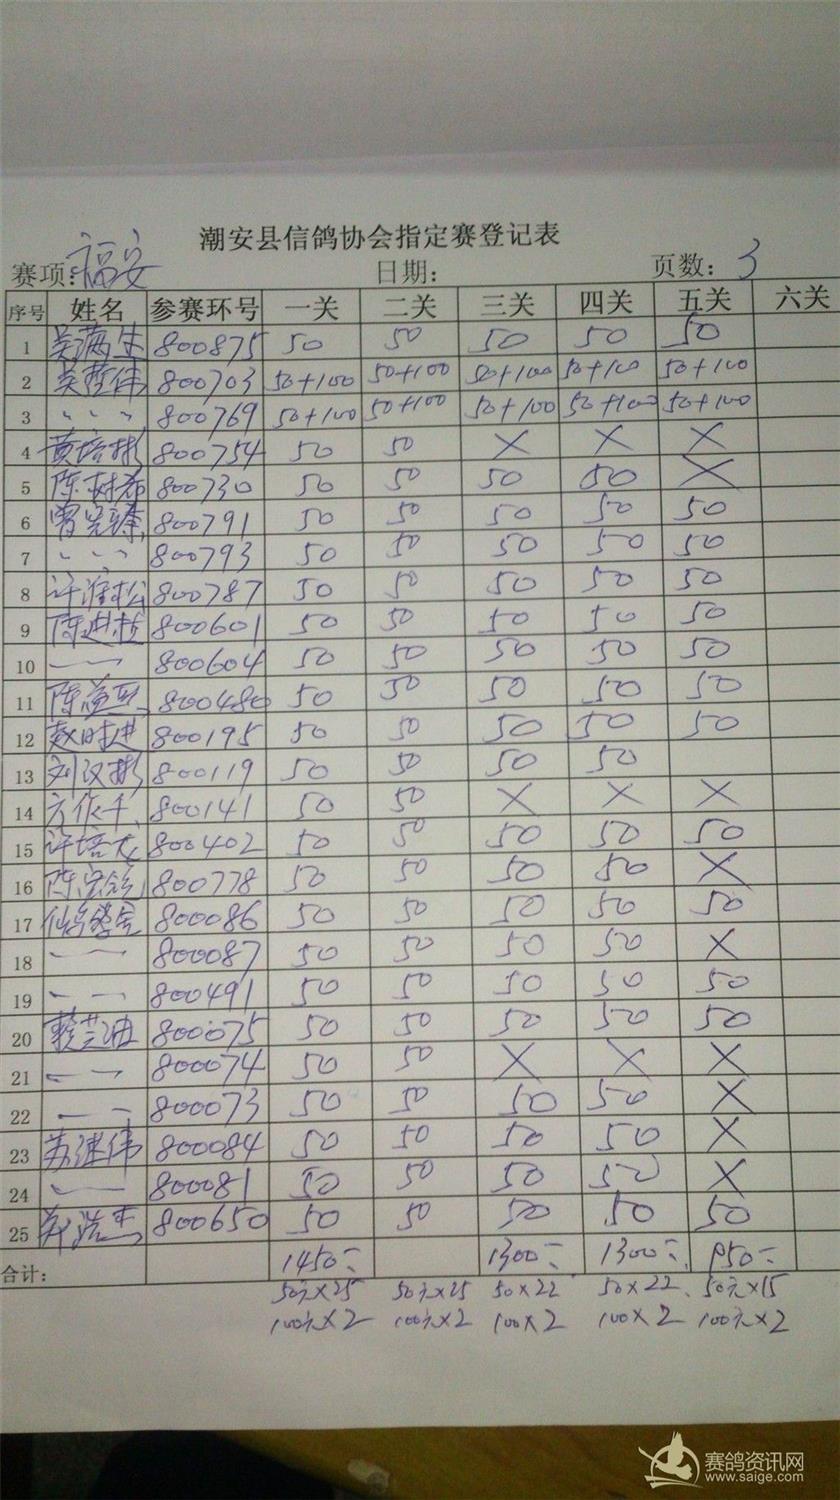 潮安县信鸽协会指定赛登记表
赛项:福安 日期: 页数: 3
序号 姓名 参赛环号 一关 二关 三关 四关 五关 六关
1 吴满生 800875 50 50 50 50 50
2 800703 50+100 50+100 50+100 50+100 50+100
3 〃 〃 〃 800769 50+100 50+100 50+100 50+100 50+100
4 黄培彬 800754 50 50 X X X
5 陈树希 800730 50 50 50 50 X
6 800791 50 50 50 50 50
7 〃 〃 〃 800793 50 50 50 50 50
8 800787 50 50 50 50 50
9 800601 50 50 50 50 50
10 800604 50 50 50 50 50
11 800480 50 50 50 50 50
12 赵时进 800195 50 50 50 50 50
13 刘汉彬 800119 50 50 50 50
14 800141 50 50 X X X
15 800402 50 50 50 50 50
16 800778 50 50 50 50 X
17 800086 50 50 50 50 50
18 800087 50 50 50 50 X
19 800491 50 50 50 50 50
20 800075 50 50 50 50 50
21 800074 50 50 X X X
22 800073 50 50 50 50 X
23 800084 50 50 50 50 X
24 800081 50 50 50 50 X
25 800650 50 50 50 50 50
合计: 1450 1300 1300 950
50元×25 50元×25 50×22 50×22 50元×15
100元×2 100元×2 100×2 100×2 100元×2
赛鸽资讯网
www.saige.com